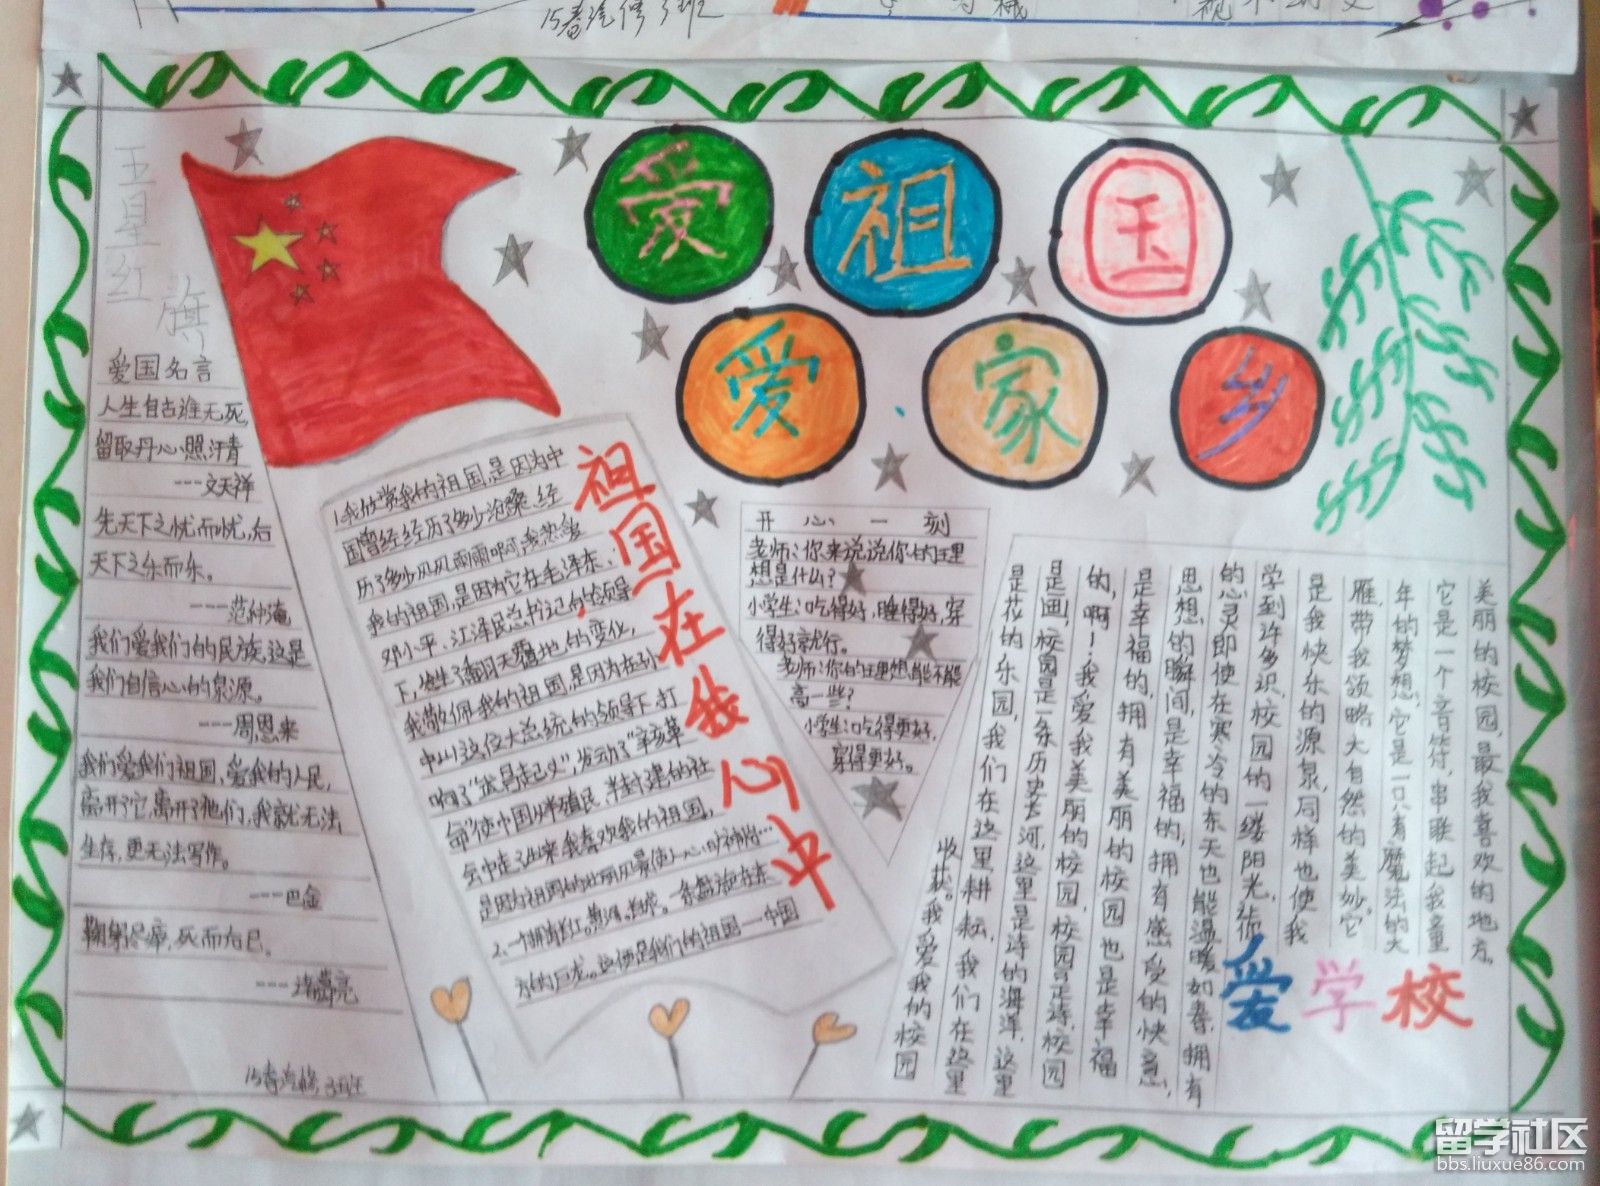 15春汽修3班
五星红旗
爱祖国
爱家乡
爱国名言
人生自古谁无死,
留取丹心照汗青
---文天祥
先天下之忧而忧,后
天下之乐而乐。
---范仲淹
我们爱我们的民族,这是
我们自信心的泉源。
---周恩来
我们爱我们祖国,爱我的人民,
离开了它,离开了他们,我就无法
生存,更无法写作。
---巴金
鞠躬尽瘁,死而后已。
---诸葛亮
15春汽修3班
祖国在我心中
1.我欣赏我的祖国,是因为中
国曾经经历了多少沧桑、经
历了多少风风雨雨啊,我热爱
我的祖国,是因为它在毛泽东、
邓小平、江泽民总书记的领导
下,发生了翻天覆地的变化,
我敬佩我的祖国,是因为在孙
中山这位大总统的领导下,打
响了“武昌起义”,发动了“辛亥革
命”使中国从半殖民、半封建的社
会中走了出来,我喜欢我的祖国,
是因为祖国的壮丽风景使人心旷神怡…
2.一个拥有长江、黄河、长城。一条盘旋在东
方的巨龙。这便是我们的祖国——中国
开心一刻
老师:你来说说你的理
想是什么?
小学生:吃得好,睡得好,穿
得好就行。
老师:你的理想能不能
高一些?
小学生:吃得更好,
穿得更好。
美丽的校园,最我喜欢的地方,
它是一个音符,串联起我童
年的梦想,它是一只有魔法的大
雁,带我领略大自然的美妙,它
是我快乐的源泉,同样也使我
学到许多识,校园的一缕阳光,
的心灵即使在寒冷的东天也能温暖如春,拥有
思想的瞬间,是幸福的,拥有感受的快意,
是幸福的,拥有美丽的校园也是幸福
的,啊!我爱我美丽的校园,
是画,校园是一条历史长河,这里是诗的海洋,这里
是花的乐园,我们在这里耕耘,我们在这里
收获。我爱我的校园
爱学校
留学社区
bbs.liuxue86.com